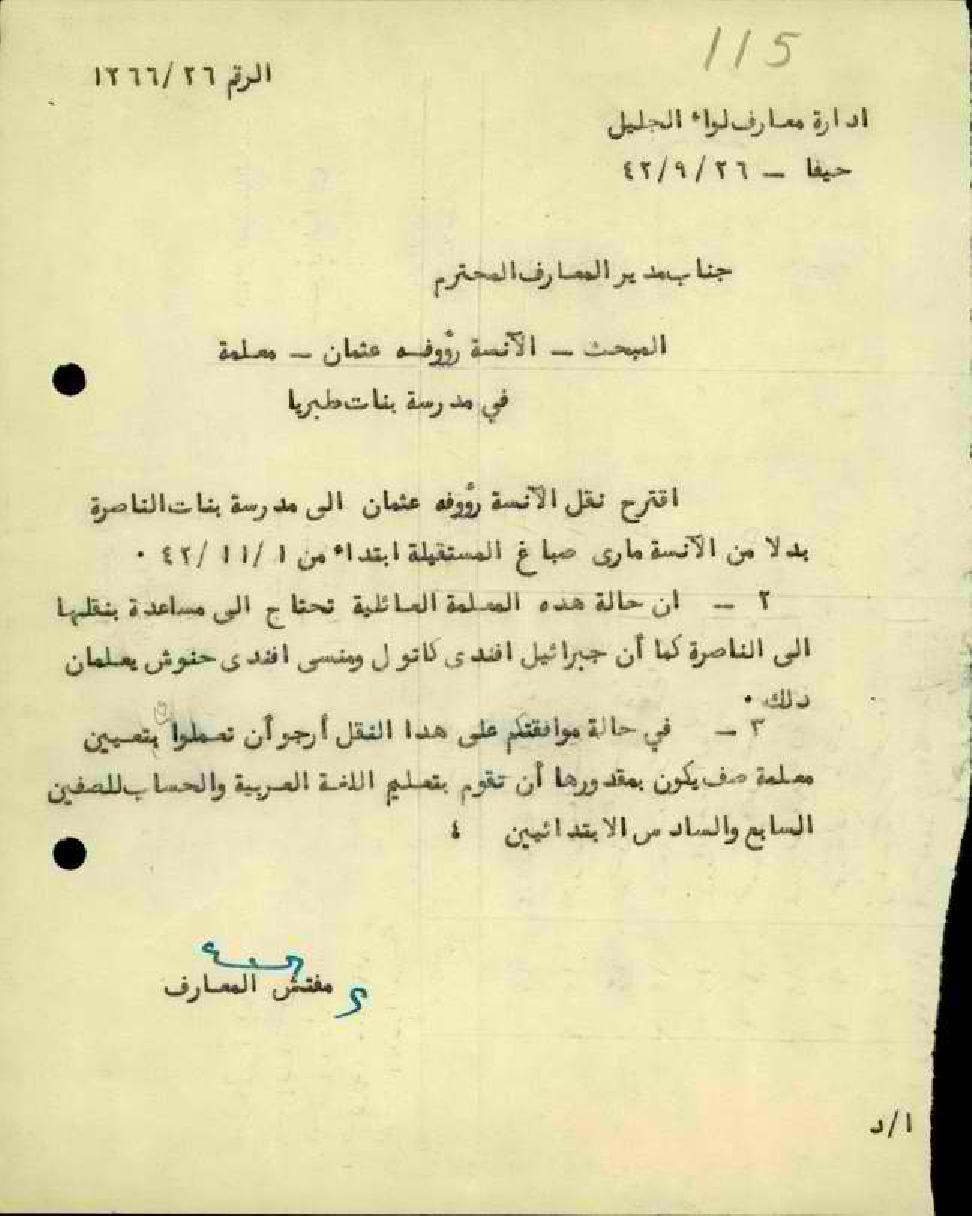 115
الرقم ١٢٦٦/٢٦
ادارة معارف لواء الجليل
حيفا – ٤٢/٩/٢٦
جناب مدير المعارف المحترم
المبحث – الآنسة رؤوفه عثمان – معلمة
في مدرسة بنات طبريا
اقترح نقل الآنسة رؤوفه عثمان الى مدرسة بنات الناصرة
بدلا من الآنسة مارى صباغ المستقيلة ابتداء من ١/ ١١/ ٤٢ ٠
٢ – ان حالة هده المعلمة العائلية تحتاج الى مساعدة بنقلها
الى الناصرة كما أن جبرائيل افندى كاتول ومنسى افندى حنوش يعلمان
دلك ٠
٣ – في حالة موافقتكم على هدا النقل أرجو أن تعملوا بتعيين
معلمة صف يكون بمقدورها أن تقوم بتعليم اللغة العربية والحساب للصفين
السابع والسادس الابتدائيين ٤
مفتش المعارف
ا/د